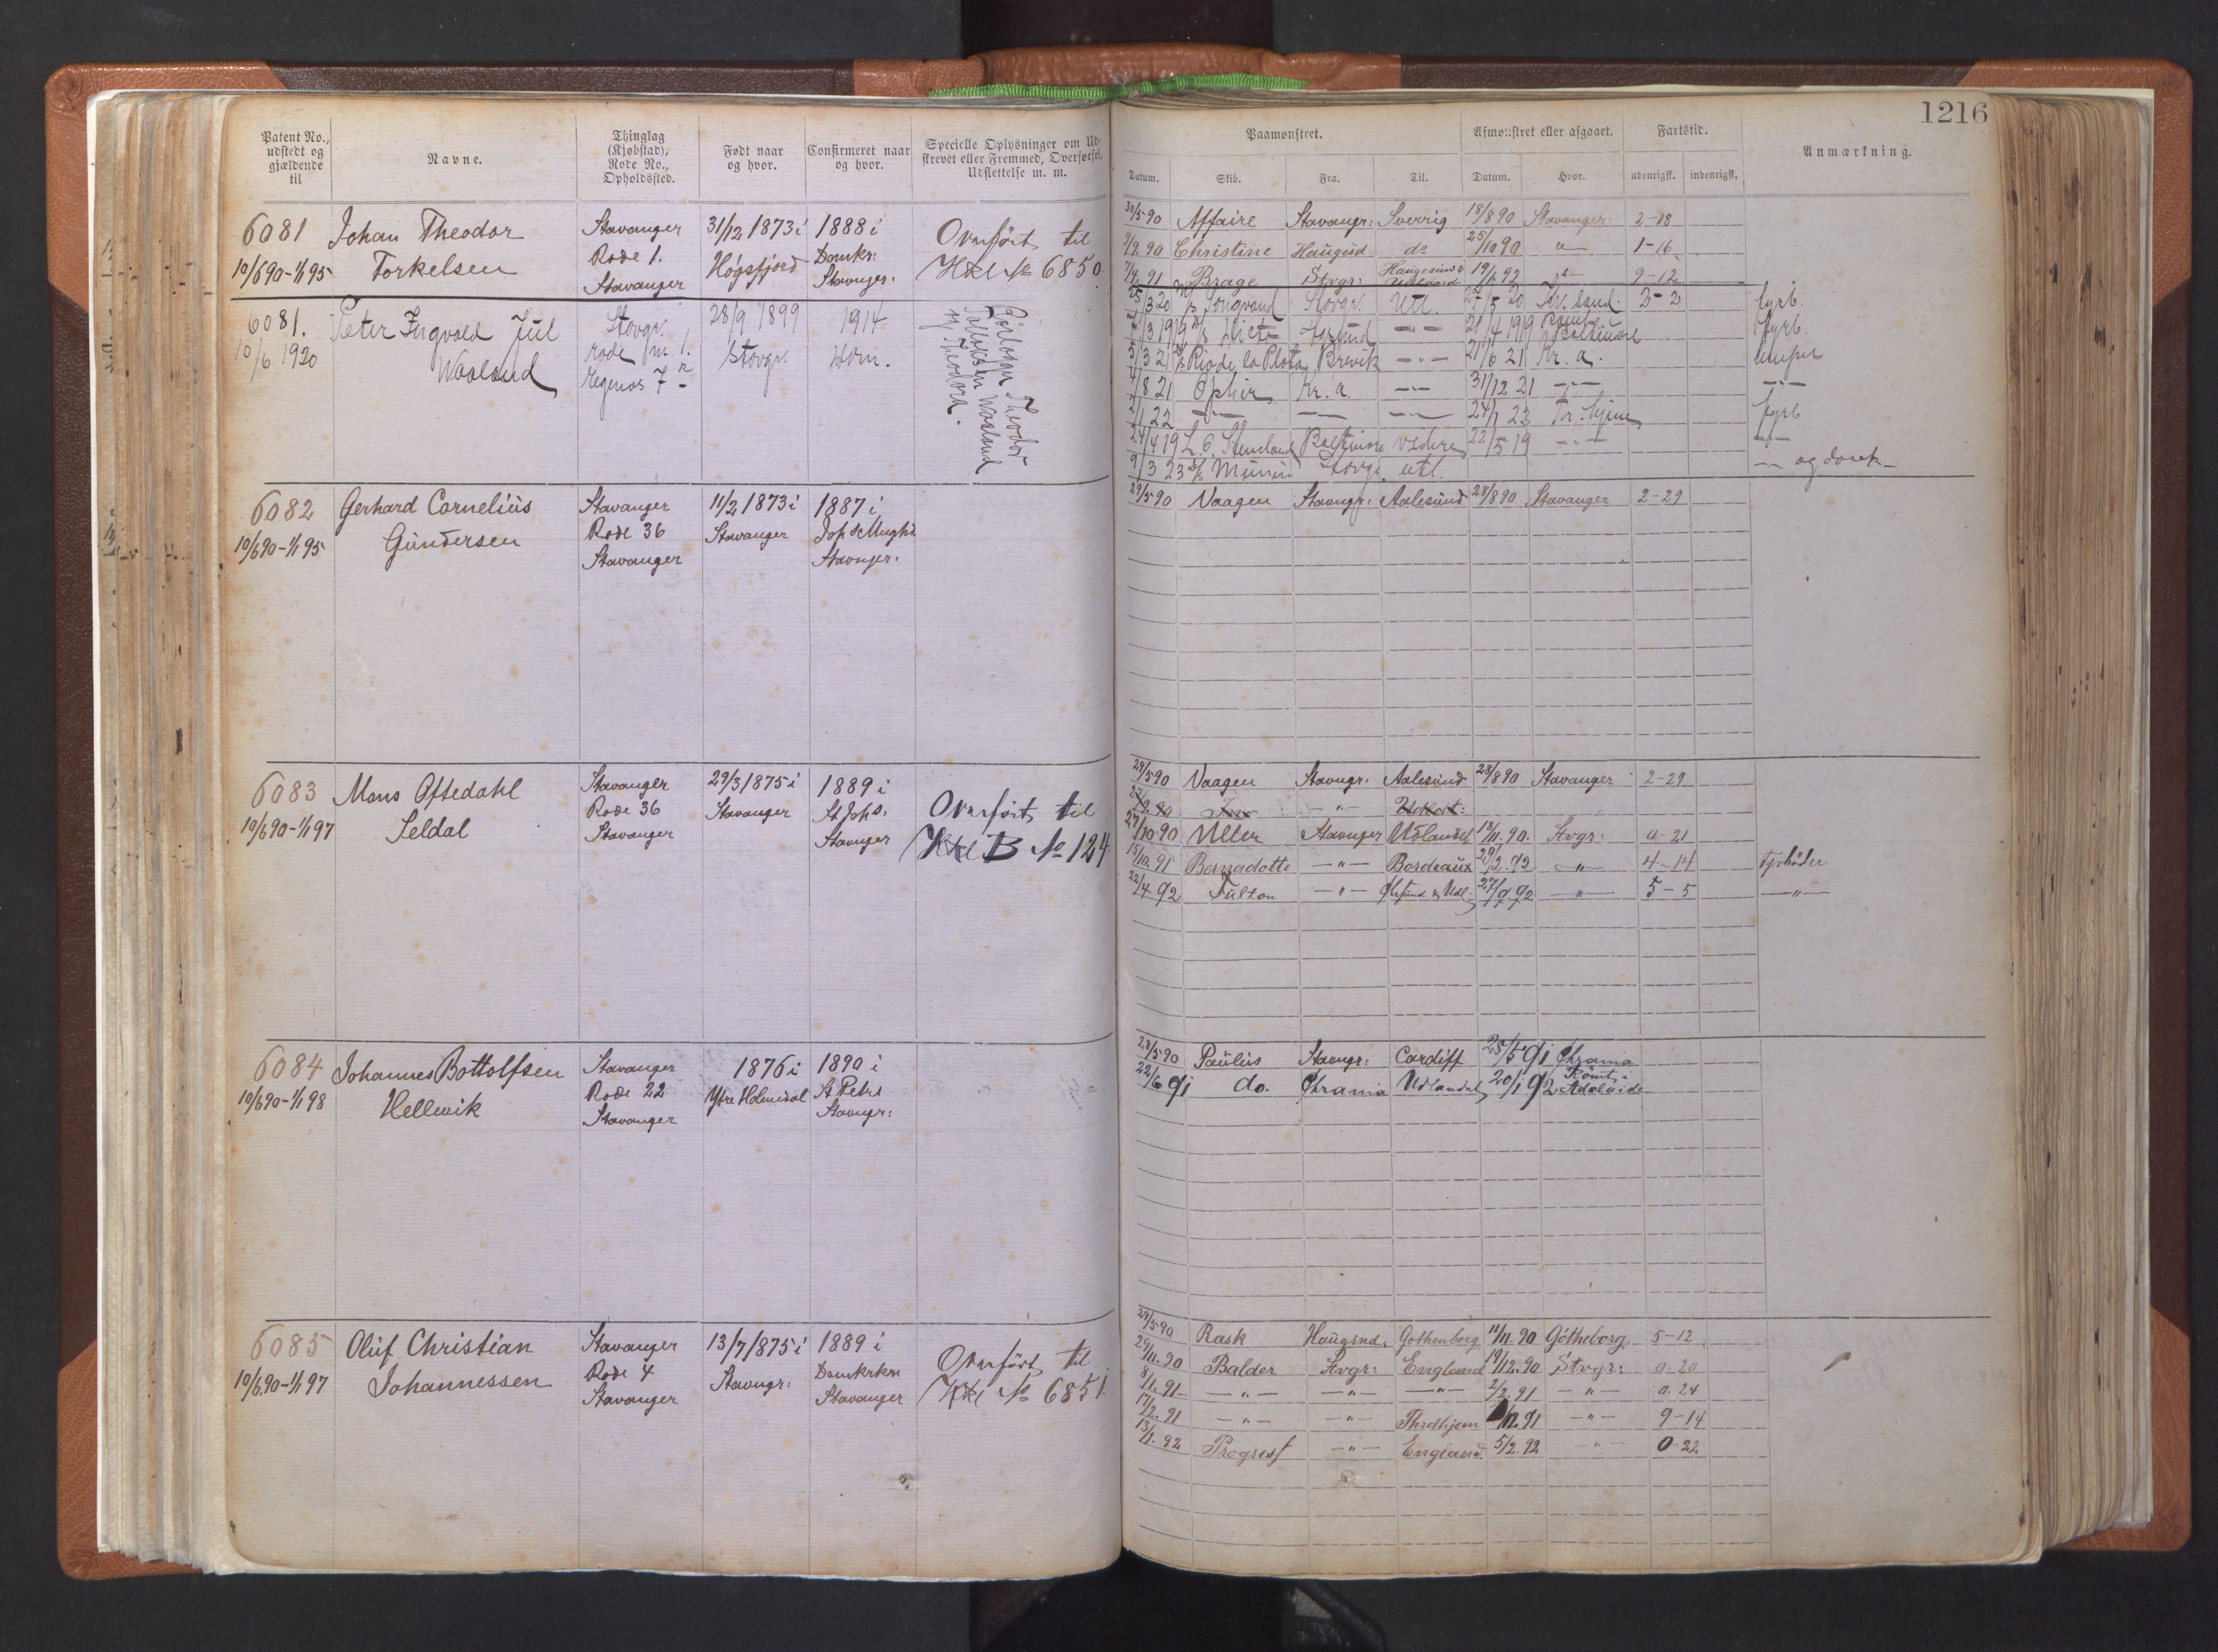 1216
Patent No., udstedt og gjældende til
Navne.
Thinglag (Kjøbstad), Rode No., Opholdssted.
Født naar og hvor.
Confirmeret naar og hvor.
Specielle Oplysninger om Udskrevet eller Fremmed, Overførsel, Udslettelse m. m.
Paamønstret.
Afmønstret eller afgaaet.
Fartstid.
Anmærkning.
Datum. Skib. Fra. Til. Datum. Hvor. udenrigsk. indenrigsk.
6081 Johan Theodor Stavanger 31/12 1873 i 1888 i Overført til
10/6 90-1/1 95 Torkelsen Rode 1. Høgsfjord Domkr: Htl No 6850
Stavanger Stavnger.
30/5 90 Affaire Stavangr: Sverrig 18/8 90 Stavanger 2-18
9/9 90 Christine Haugsd do 25/10 90 " 1-16
7/4 91 Brage Stvgr: Haugesund & Udland 19/1 92 9-12
6081. Peter Ingvald Jul Stavgr. 28/9 1899 1914
10/6 1920 Waaland rode m. 1. Stavgr. dom.
25/3 20 Stavgr. Utl. 20 2-2 fyrb.
7/3 1919 21/4 1919 Baltimore fyrb.
5/3 21 Rio de la Plata Brevik -"- 21/6 21 Kr. a. lemper
4/8 21 Ophir Kr. a. -"- 31/12 21 -"- -"-
2/1 22 -"- -"- -"- 24/1 22 fyrb
24/4 19 Baltimore videre 22/5 19 -"- -"-
9/3 23 Munin Stavgr. utl. -"- og donk-
6082 Gerhard Cornelius Stavanger 11/2 1873 i 1887 i
10/6 90-1/1 95 Gundersen Rode 36 Stavanger
Stavanger Stavnger.
29/5 90 Vaagen Stavngr: Aalesund 28/8 90 Stavanger 2-29
6083 Mons Oftedahl Stavanger 29/3 1875 i 1889 i Overført til
10/6 90-1/1 97 Seldal Rode 36 Stavanger St Johs. Htl B No 124
Stavanger Stavnger
29/5 90 Vaagen Stavngr: Aalesund 28/8 90 Stavanger 2-29
27/10 90 Uller Stavnger Udlandet 18/11. 90. Stvgr: 0-21
15/10. 91 Bernadotte -"- Bordeaux 29/2. 92 -"- 4-14 Fyrbøder
22/4 92 Fulton -"- 27/9 92 -"- 5-5 -"-
6084 Johannes Bottolfsen Stavanger 1876 i 1890 i
10/6 90-1/1 98 Hellevik Rode 22 Ytre Holmedal St Petri
Stavanger Stavngr:
28/5 90 Paulus Stavngr: Cardiff 28/5 91 Chrania
22/6 91 do. Chrania Udlandet 20/1 92 Rømt i Adelaide
6085 Oluf Christian Stavanger 13/7 1875 i 1889 i Overført til
10/6 90-1/1 97 Johannessen Rode 4 Stavngr: Domkrkn Htl No 6851
Stavanger Stavanger
29/5 90 Rask Haugsnd. Gothenborg 11/11. 90 Götheborg 5-12
29/11. 90 Balder Stvgr: England 19/12. 90 Stvgr: 0-20
8/1. 91 -"- -"- -"- 2/2. 91 -"- 0.24
17/2. 91 -"- -"- Thrdhjem 1/12. 91 -"- 9-14
13/1. 92 Progress -"- England. 5/2. 92 -"- 0-22